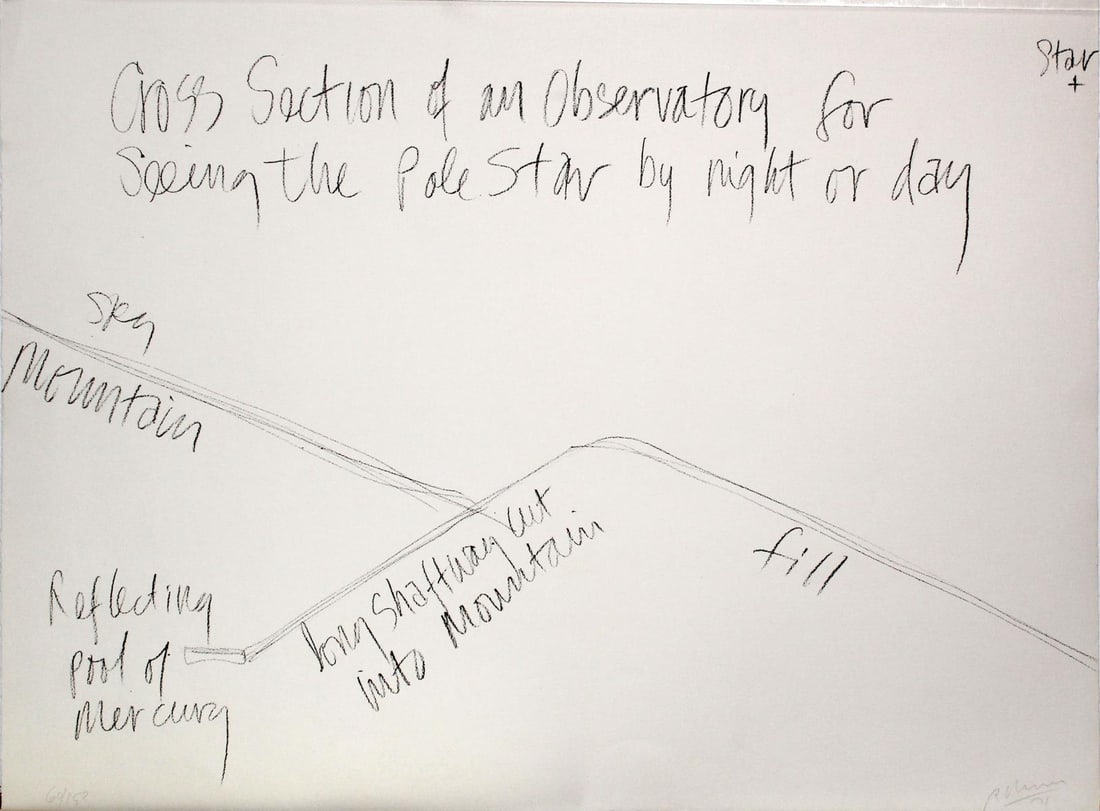 Star
+
Cross Section of an Observatory for
Seeing the Pole Star by night or day
Sky
Mountain
long Shaftway cut
into Mountain
fill
Reflecting
pool of
Mercury